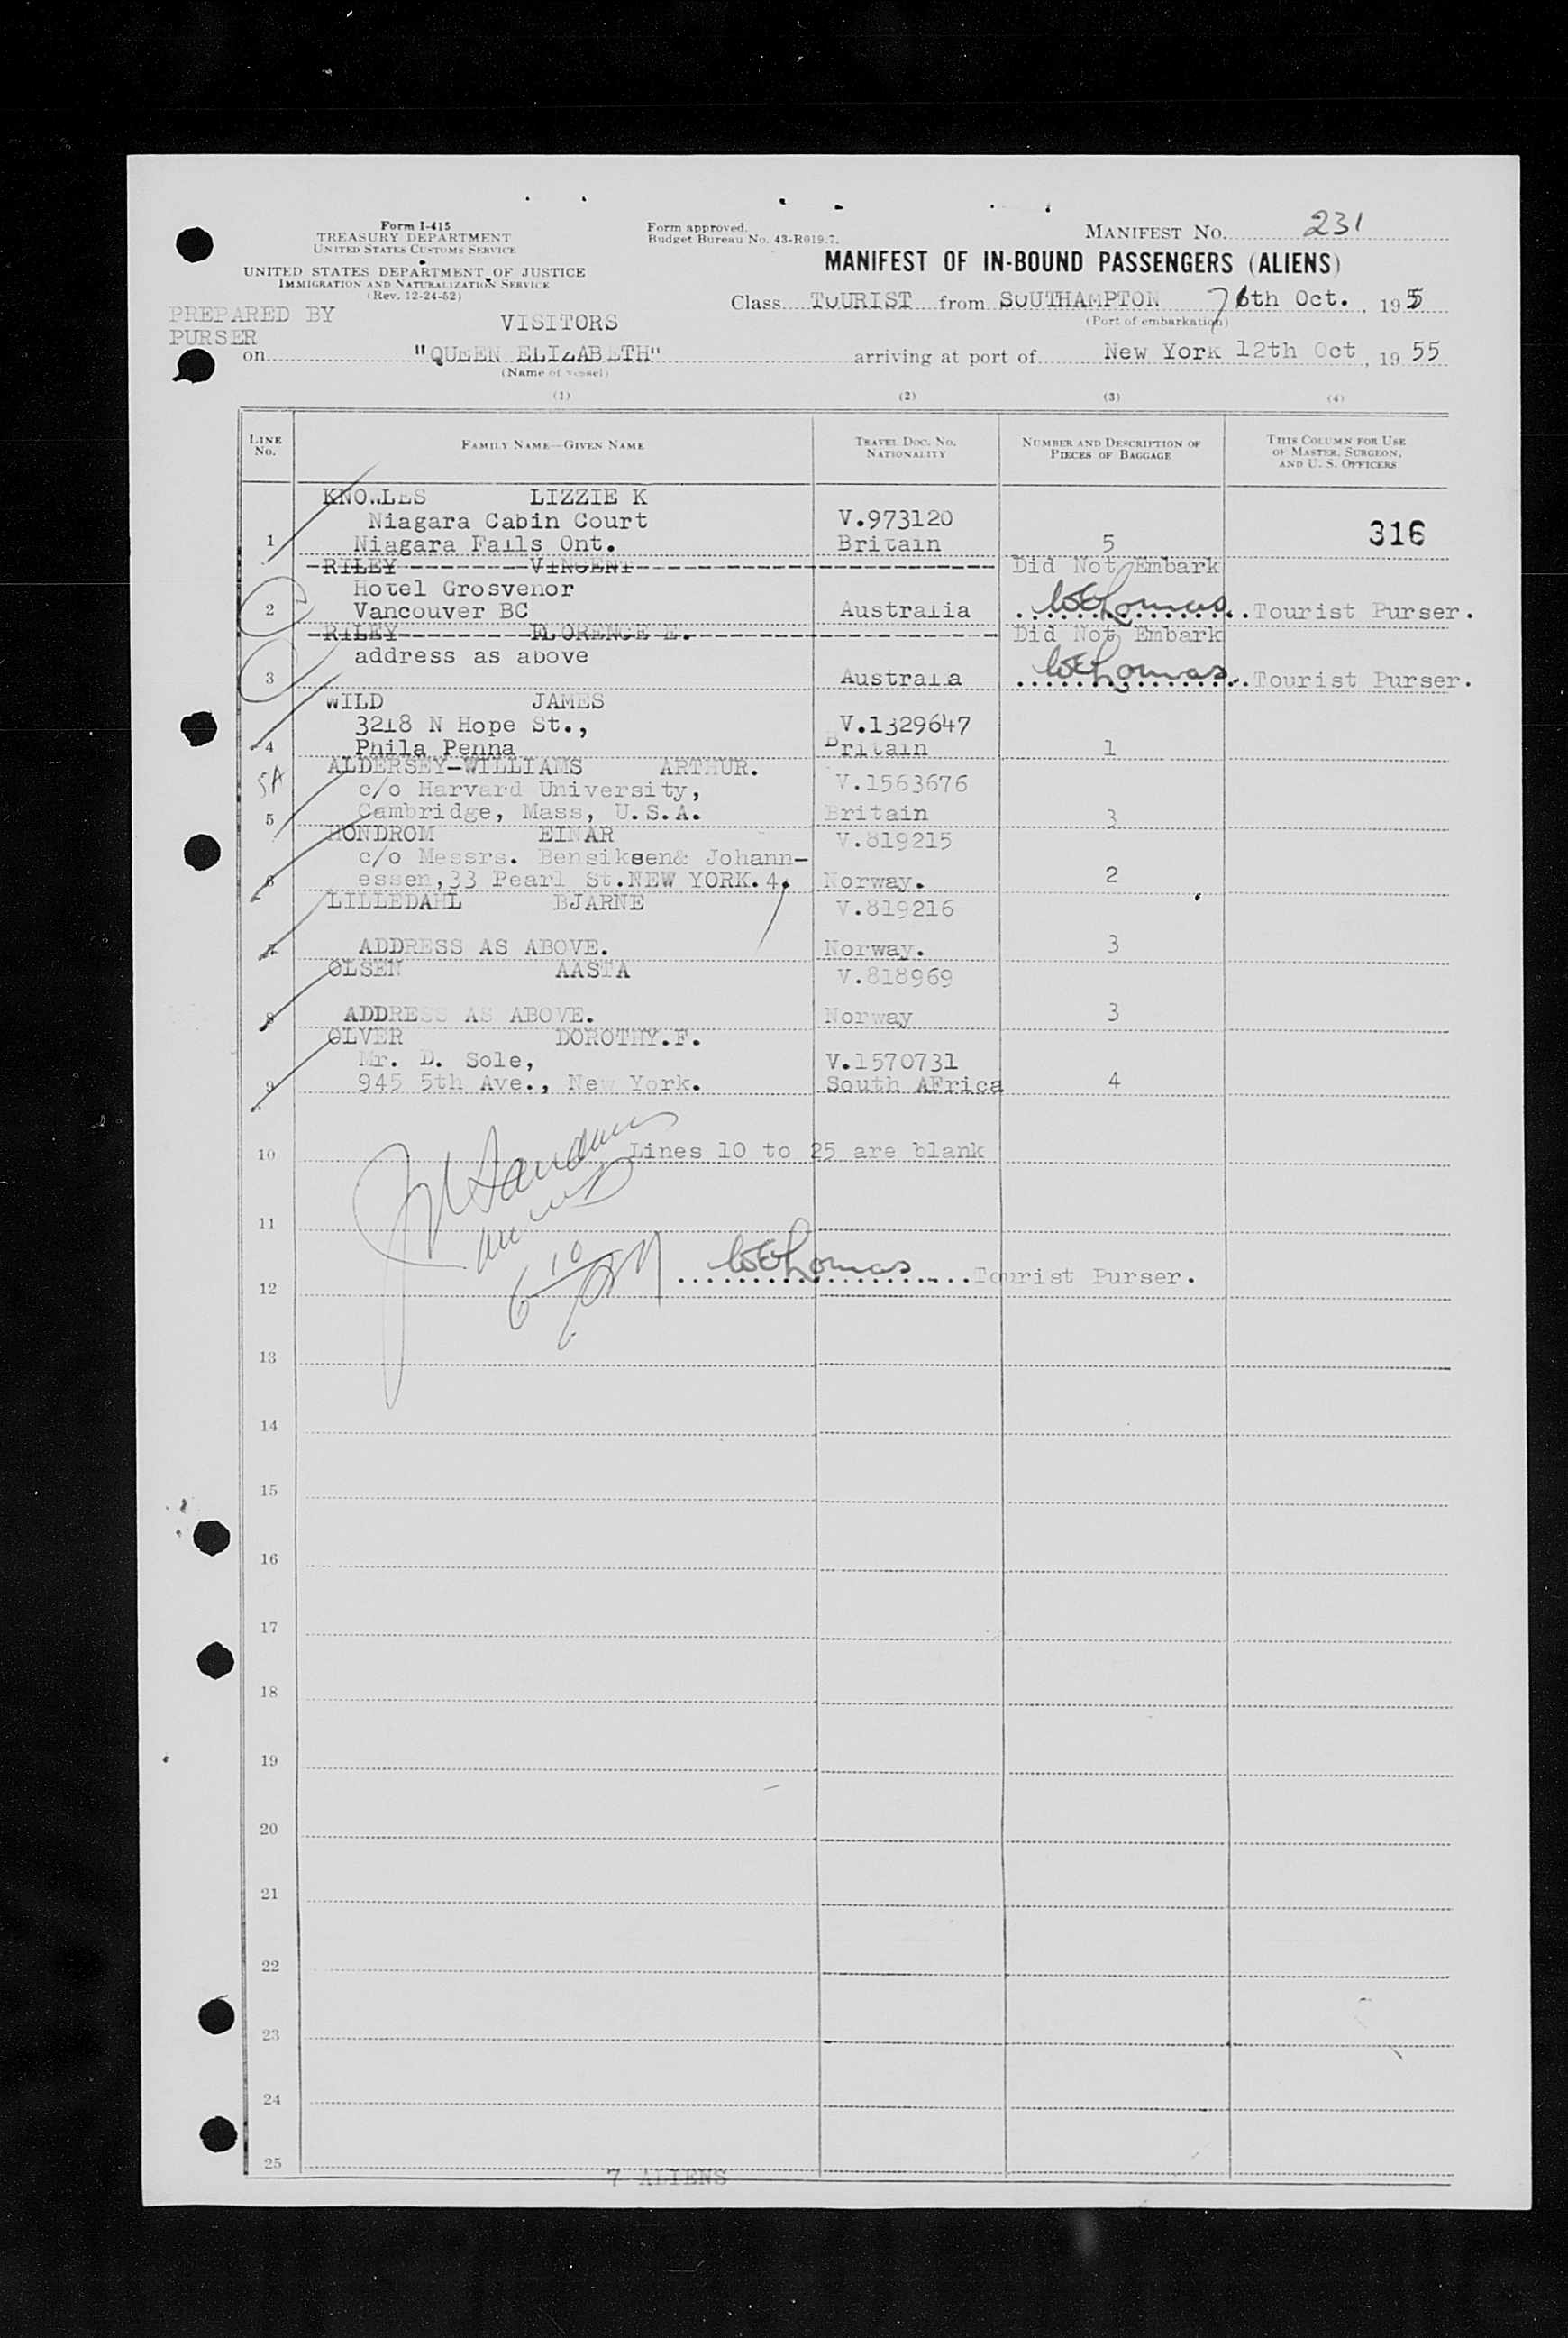 Form I-415
TREASURY DEPARTMENT
UNITED STATES CUSTOMS SERVICE
UNITED STATES DEPARTMENT OF JUSTICE
IMMIGRATION AND NATURALIZATION SERVICE
(Rev. 12-24-52)
Form approved.
Budget Bureau No. 43-R019.7.
MANIFEST No. 231
MANIFEST OF IN-BOUND PASSENGERS (ALIENS)
Class TOURIST from SOUTHAMPTON 76th Oct., 195
(Port of embarkation)
PREPARED BY
PURSER
VISITORS
on "QUEEN ELIZABETH" arriving at port of New York 12th Oct, 1955
(Name of vessel)
(1) (2) (3) (4)
LINE No. FAMILY NAME—GIVEN NAME TRAVEL DOC. NO. NATIONALITY NUMBER AND DESCRIPTION OF PIECES OF BAGGAGE THIS COLUMN FOR USE OF MASTER, SURGEON, AND U. S. OFFICERS
KNO..LES LIZZIE K
Niagara Cabin Court V.973120 316
1 Niagara Falls Ont. Britain 5
RILEY VINCENT Did Not Embark
Hotel Grosvenor
2 Vancouver BC Australia WEThomas Tourist Purser.
RILEY FLORENCE E. Did Not Embark
address as above
3 Australia WEThomas Tourist Purser.
WILD JAMES
3218 N Hope St., V.1329647
4 Phila Penna Britain 1
ALDERSEY-WILLIAMS ARTHUR.
5A c/o Harvard University, V.1563676
5 Cambridge, Mass, U.S.A. Britain 3
HONDROM EINAR V.819215
c/o Messrs. Bensiksen& Johann-
6 essen,33 Pearl St.NEW YORK.4. Norway. 2
LILLEDAHL BJARNE V.819216
7 ADDRESS AS ABOVE. Norway. 3
OLSEN AASTA V.818969
8 ADDRESS AS ABOVE. Norway 3
OLVER DOROTHY.F.
Mr. D. Sole, V.1570731
9 945 5th Ave., New York. South AFrica 4
10 Lines 10 to 25 are blank
11
12 WEThomas Tourist Purser.
13
14
15
16
17
18
19
20
21
22
23
24
25
7 ALIENS